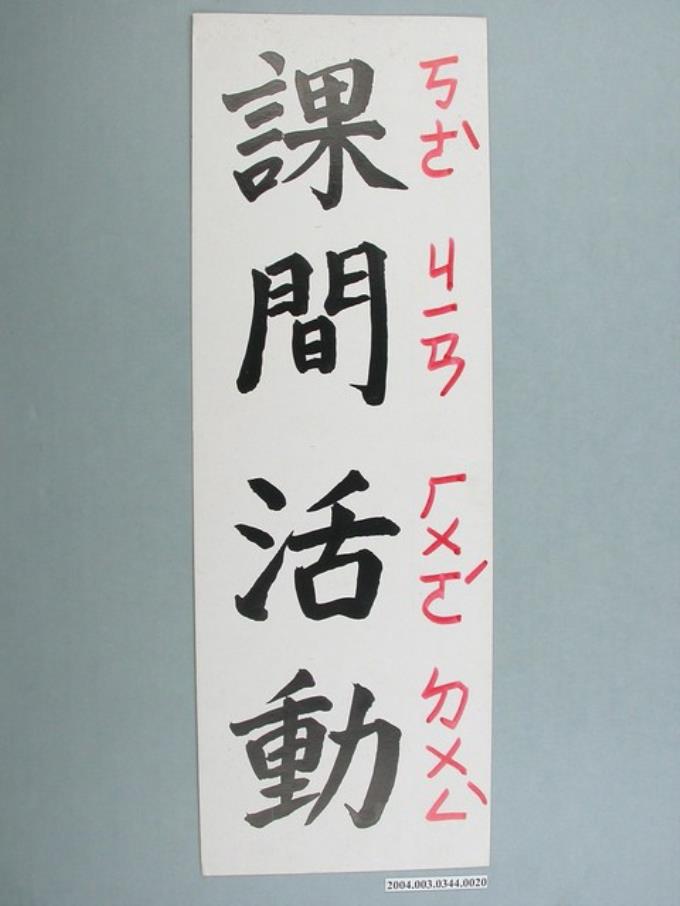 課間活動
ㄎㄜˋ ㄐㄧㄢ ㄏㄨㄛˊ ㄉㄨㄥˋ
2004.003.0344.0020